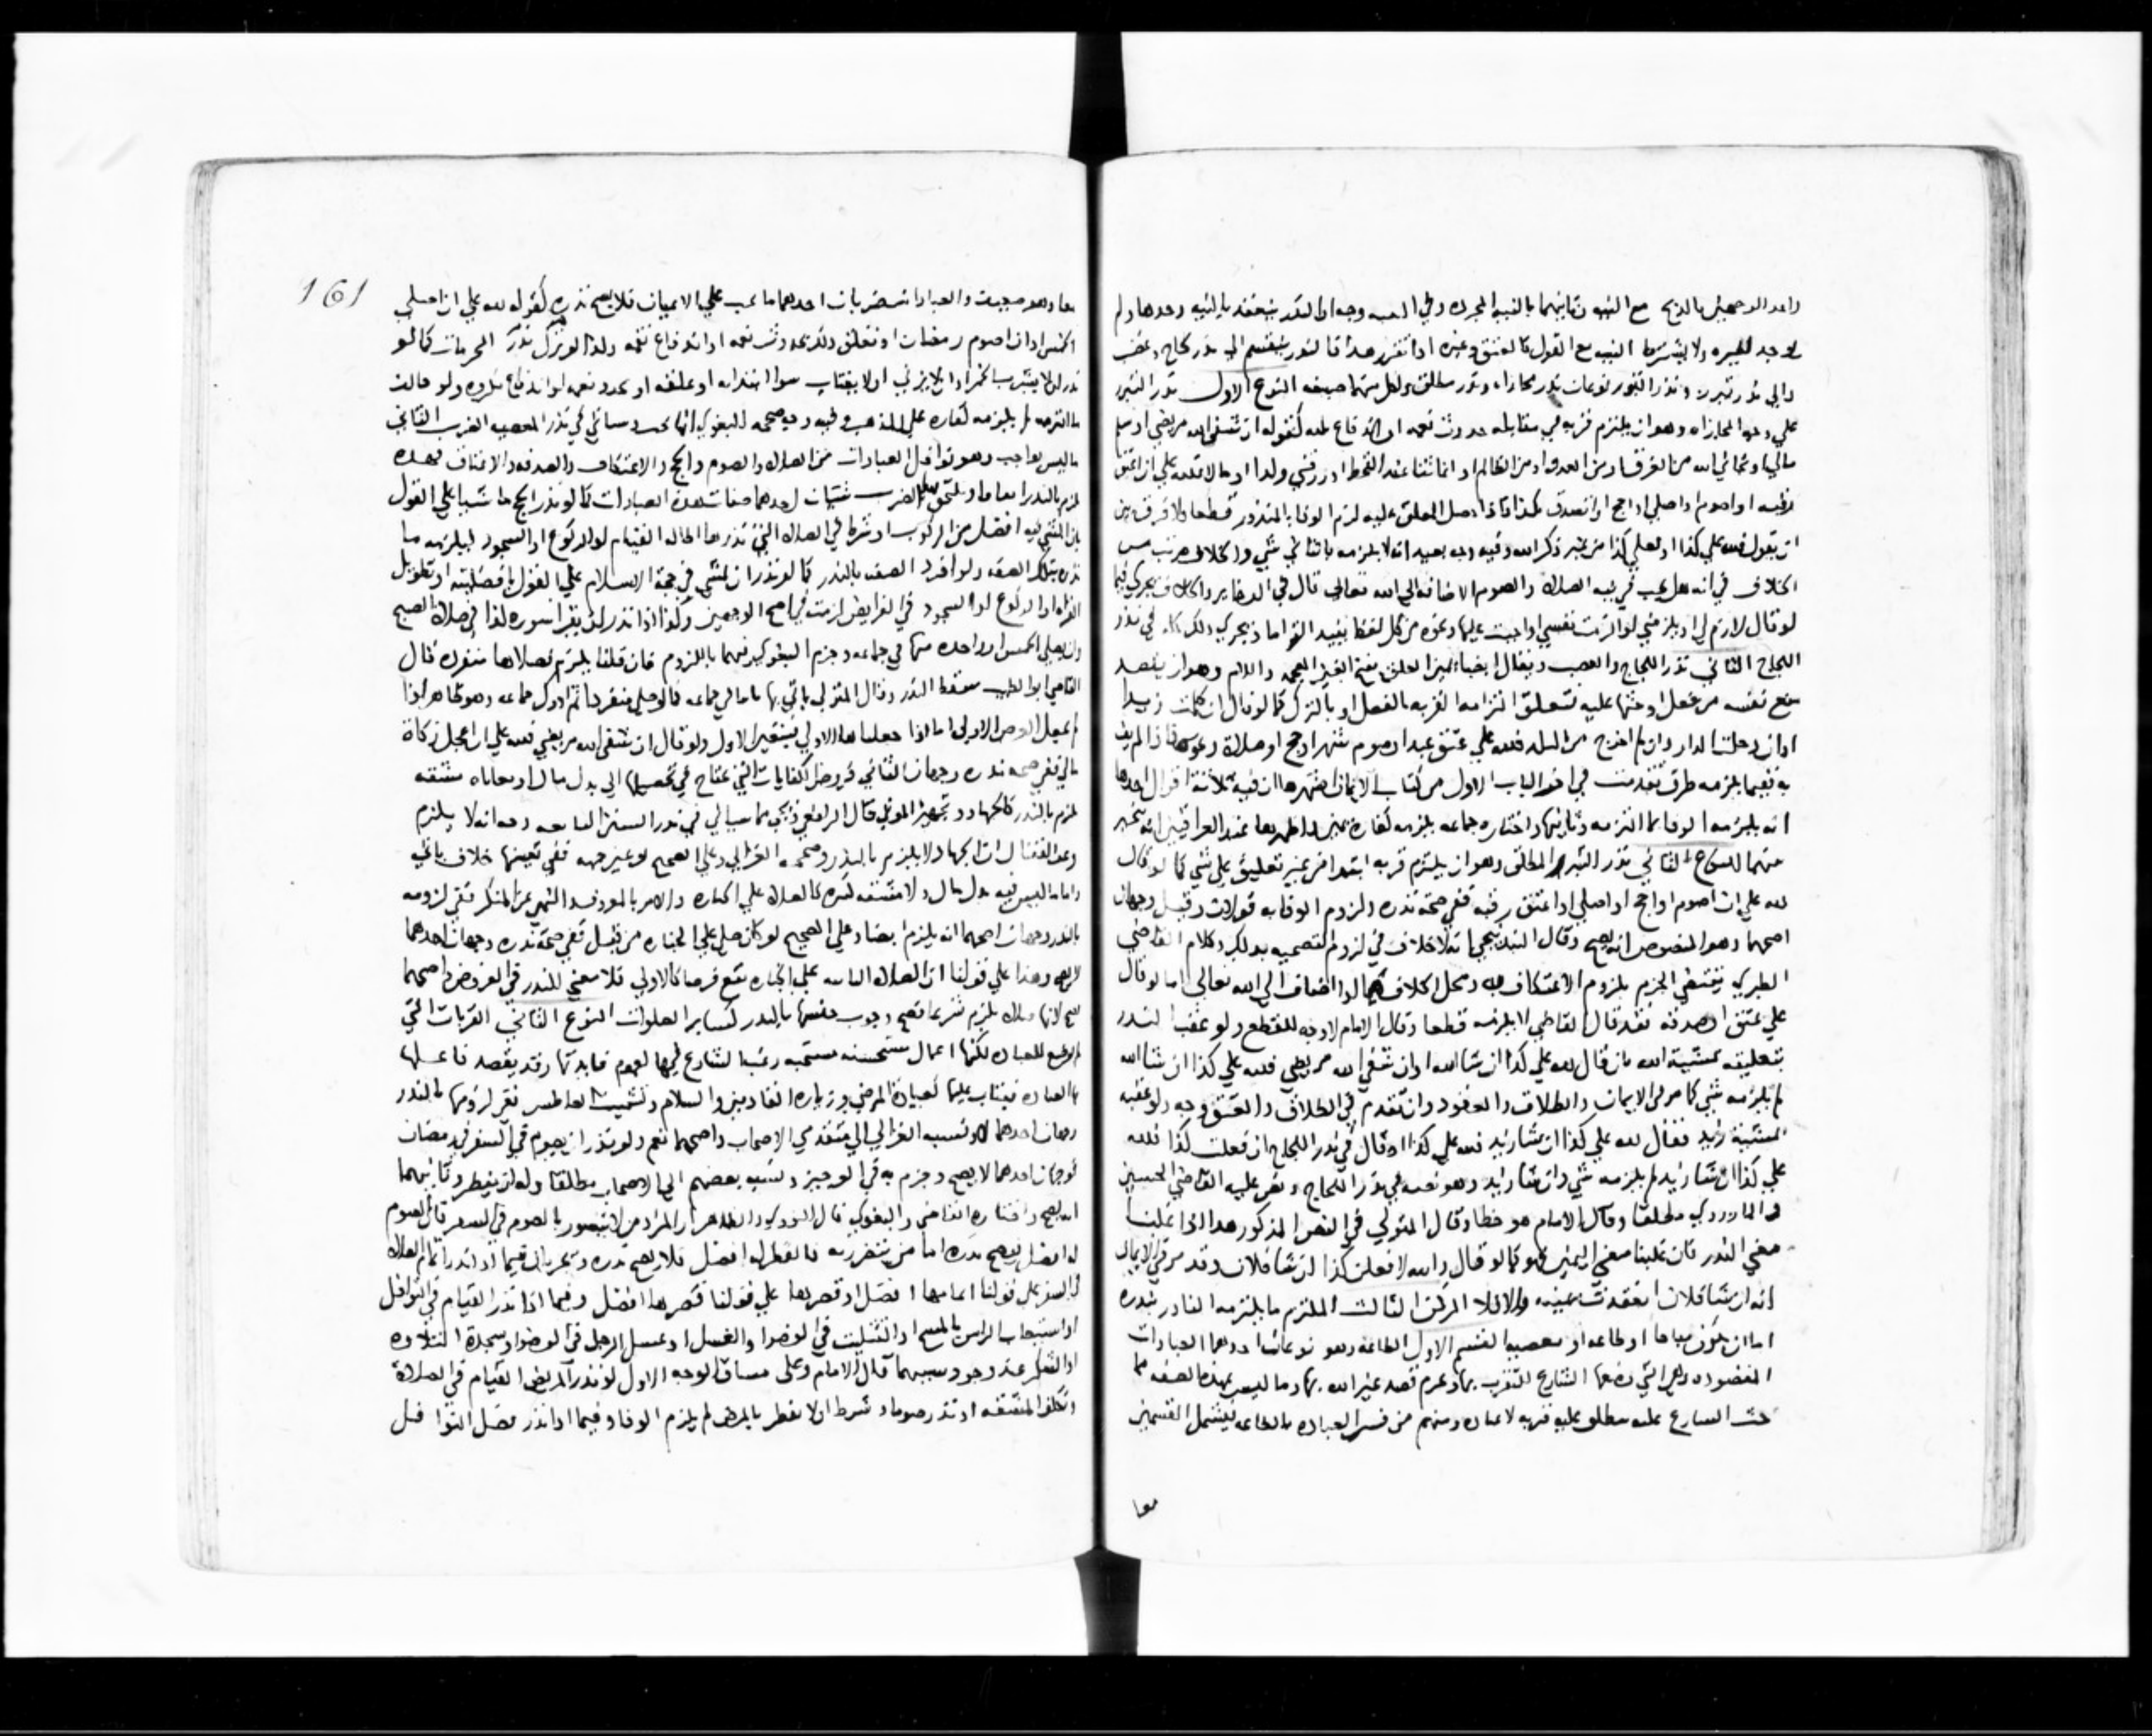 واحد الوجهين بالذبح مع النية وثانيهما بالنية المجردة وفي وجه ان النذر ينعقد بالنية وحدها ولم
يوجد لغيره ولا يشترط النية مع القول كالعتق وغيره اذا تقرر هذا فالنذر ينقسم الى نذر لجاج وغضب
والى نذر تبرر ونذر التبرر نوعان نذر مجازاه ونذر مطلق ولكل منهما صيغه النوع الاول نذر التبرر
على وجه المجازاه وهو ان يلتزم قربه في مقابله حدوث نعمه او اندفاع بليه كقوله ان شفى الله مريضي او سلم
مالي او نجاني الله من الغرق او من العدو او من الظالم او اغاثنا عند القحط او رزقني ولدا او مالا فلله علي ان اعتق
رقبه او اصوم او اصلي او احج او اتصدق بكذا فاذا حصل المعلق عليه لزم الوفا بالمنذور قطعا ولا فرق بين
ان يقول فلله علي كذا او فعلي كذا من غير ذكر الله وفيه وجه بعيد انه لا يلزمه بالثاني شي والخلاف مرتب من
الخلاف في انه هل يجب في نية الصلاة والصوم الاضافه الى الله تعالى قال في الذخاير والخلاف يجري فيما
لو قال لازم لي او يلزمني او الزمت نفسي او اوجبت عليها ونحوه من كل لفظ يفيد التزاما ويجري ذلك كله في نذر
اللجاج الثاني نذر اللجاج والغضب ويقال ايضا يمين الغلق بفتح الغين المعجمه واللام وهو ان يقصد
منع نفسه من فعل او حثها عليه بتعليق التزامه القربه بالفعل او بالترك كما لو قال ان كلمت زيدا
او ان دخلت الدار وان لم اخرج من البلد فلله علي عتق عبد او صوم شهر او حج او صلاة ونحوه فاذا لم يف
به ففيما يلزمه طرق تقدمت في اخر الباب الاول من كتاب الايمان اشهرها ان فيه ثلاثة اقوال احدها
انه يلزمه الوفا بما التزمه وثانيها واختاره جماعه يلزمه كفارة يمين واظهرها عند العراقيين انه يتخير
منهما النوع الثاني نذر التبرر المطلق وهو ان يلتزم قربه ابتدا من غير تعليق على شي كما لو قال
لله علي ان اصوم او احج او اصلي او اعتق رقبه ففي صحة نذره ولزوم الوفا به قولان وقيل وجهان
اصحهما وهو المنصوص انه يصح وقال البندنيجي انه لا خلاف في لزوم التضحيه بذلك وكلام القاضي
الطبري يقتضي الجزم بلزوم الاعتكاف به ومحل الخلاف فيما اذا اضاف الى الله تعالى اما لو قال
علي عتق او صدقه فقد قال القاضي لا يلزمه قطعا وقال الامام لا وجه للقطع ولو عقب النذر
بتعليقه بمشيئة الله بان قال لله علي كذا ان شا الله او ان شفى الله مريضي فلله علي كذا ان شا الله
لم يلزمه شي كما مر في الايمان والطلاق والعقود وان تقدم في الطلاق والعتق وجه ولو عقبه
بمشيئة زيد فقال لله علي كذا ان شا زيد فلله علي كذا او قال في نذر اللجاج ان فعلت كذا فلله
علي كذا ان شا زيد لم يلزمه شي وان شا زيد وهو نصه في نذر اللجاج ونص عليه القاضي الحسين
والماوردي مطلقا وقال الامام هو خطا وقال المتولي في النص المذكور هذا اذا غلبنا
معنى النذر فان غلبنا معنى اليمين فهو كما لو قال والله لافعلن كذا ان شا فلان وقد مر في الايمان
انه ان شا فلان انعقدت يمينه والا فلا الركن الثالث الملتزم ما يلتزمه الناذر بنذره
اما ان يكون مباحا او طاعه او معصيه القسم الاول الطاعه وهو نوعان احدهما العبادات
المقصوده وهي التي وضعها الشارع للتقرب بها وعزم قصد غير الله بها وما ليس بهذه الصفه مما
حث الشارع عليه يطلق عليه قربه لا عباده ومنهم من فسر العباده بالطاعه فيشمل القسمين
معا
161
معا وهو والعبادات ضربان احدهما ما يجب على الاعيان فلا يصح نذره كقوله لله علي ان اصلي
الخمس او ان اصوم رمضان او تعلق ذلك بحدوث نعمه او اندفاع نقمه وكذا لو نذر ترك المحرمات كما لو
نذر ان لا يشرب الخمر او ان لا يزني او لا يغتاب سوا ابتداه او علقه او بحدوث نعمه او اندفاع مكروه ولو خالف
ما التزمه لم يلزمه كفاره على المذهب وفيه وجه صححه البغوي انها تجب وسياتي في نذر المعصيه الضرب الثاني
ما ليس بواجب وهو نوافل العبادات من الصلاة والصوم والحج والاعتكاف والصدقه والاعتاق فهذه
تلزم بالنذر ايضا ويلتحق بهذا الضرب شيئان احدهما صفات هذه العبادات كما لو نذر الحج ماشيا على القول
بان المشي فيه افضل من الركوب او شرط في الصلاة التي نذرها اطالة القيام او الركوع او السجود فيلزمه ما
نذره بتلك الصفه ولو افرد الصفه بالنذر كما لو نذر ان يمشي في حجة الاسلام على القول بافضليته او تطويل
القراه او الركوع او السجود في الفرايض لزمت في اصح الوجهين وكذا اذا نذر ان يقرا سوره كذا في صلاة الصبح
وان يصلي الخمس او واحده منها في جماعه وجزم البغوي فيهما باللزوم فان قلنا يلزم فصلاها منفردا قال
القاضي ابو الطيب سقط النذر وقال المتولي ياتي بها ثانيا في جماعه كما لو صلى منفردا ثم ادرك جماعه وهو ظاهر اذا
لم نجعل الفرض الاولى اما اذا جعلناها الاولى فيتعين الاول ولو قال ان شفى الله مريضي فلله علي ان اعجل زكاة
مالي ففي صحه نذره وجهان الثاني فروض الكفايات التي تحتاج في تحصيلها الى بذل مال او معاناه مشقه
تلزم بالنذر كالجهاد وتجهيز الموتى قال الرافعي ويجي مما سياتي في نذر السنن الراتبه وجه انه لا يلزم
وعن القفال ان الجهاد لا يلزم بالنذر وصححه الغزالي وعلى الصحيح لو عين جهه ففي تعينها خلاف ياتي
واما ما ليس فيه بذل مال ولا مشقه كثيره كالصلاة على الجنازه والامر بالمعروف والنهي عن المنكر ففي لزومه
بالنذر وجهان اصحهما انه يلزم ايضا وعلى الصحيح لو كان صلى على الجنازه من قبل ففي صحة نذره وجهان احدهما
لا يصح وهذا على قولنا ان الصلاة الثانيه على الجنازه تقع فرضا كالاولى فلا معنى للنذر في الفروض واصحهما
يصح لانها صلاة لم تلزم شرعا فصح وجوب جنسها بالنذر كساير الصلوات النوع الثاني القربات التي
لم توضع للعباده لكنها اعمال مستحسنه مستحبه رغب الشارع فيها لعموم فايدتها وقد يقصد فاعلها
بها العباده فيثاب عليها كعيادة المرضى وزيارة القادمين والسلام وتشميت العاطس ففي لزومها بالنذر
وجهان احدهما لا ونسبه الغزالي الى متقدمي الاصحاب واصحهما نعم ولو نذر ان يصوم في السفر في رمضان
فوجهان احدهما لا يصح وجزم به في الوجيز ونسبه بعضهم الى الاصحاب مطلقا وله ان يفطر وثانيهما
انه يصح واختاره القاضي والبغوي قال النووي والظاهر ان المراد من لا يتضرر بالصوم في السفر فان الصوم
له افضل فيصح نذره اما من يتضرر به فالفطر له افضل فلا يصح نذره ويجريان فيما اذا نذر اتمام الصلاة
في السفر على قولنا اتمامها افضل او قصرها على قولنا قصرها افضل وفيما اذا نذر القيام في النوافل
او استيعاب الراس بالمسح او التثليث في الوضوا والغسل او غسل الرجل في الوضوا وسجدة التلاوه
او الشكر عند وجود سببهما قال الامام وعلى مساق الوجه الاول لو نذر المريض القيام في الصلاة
وتكلف المشقه او نذر صوما وشرط ان لا يفطر بالمرض لم يلزم الوفا وفيما اذا نذر فعل النوافل